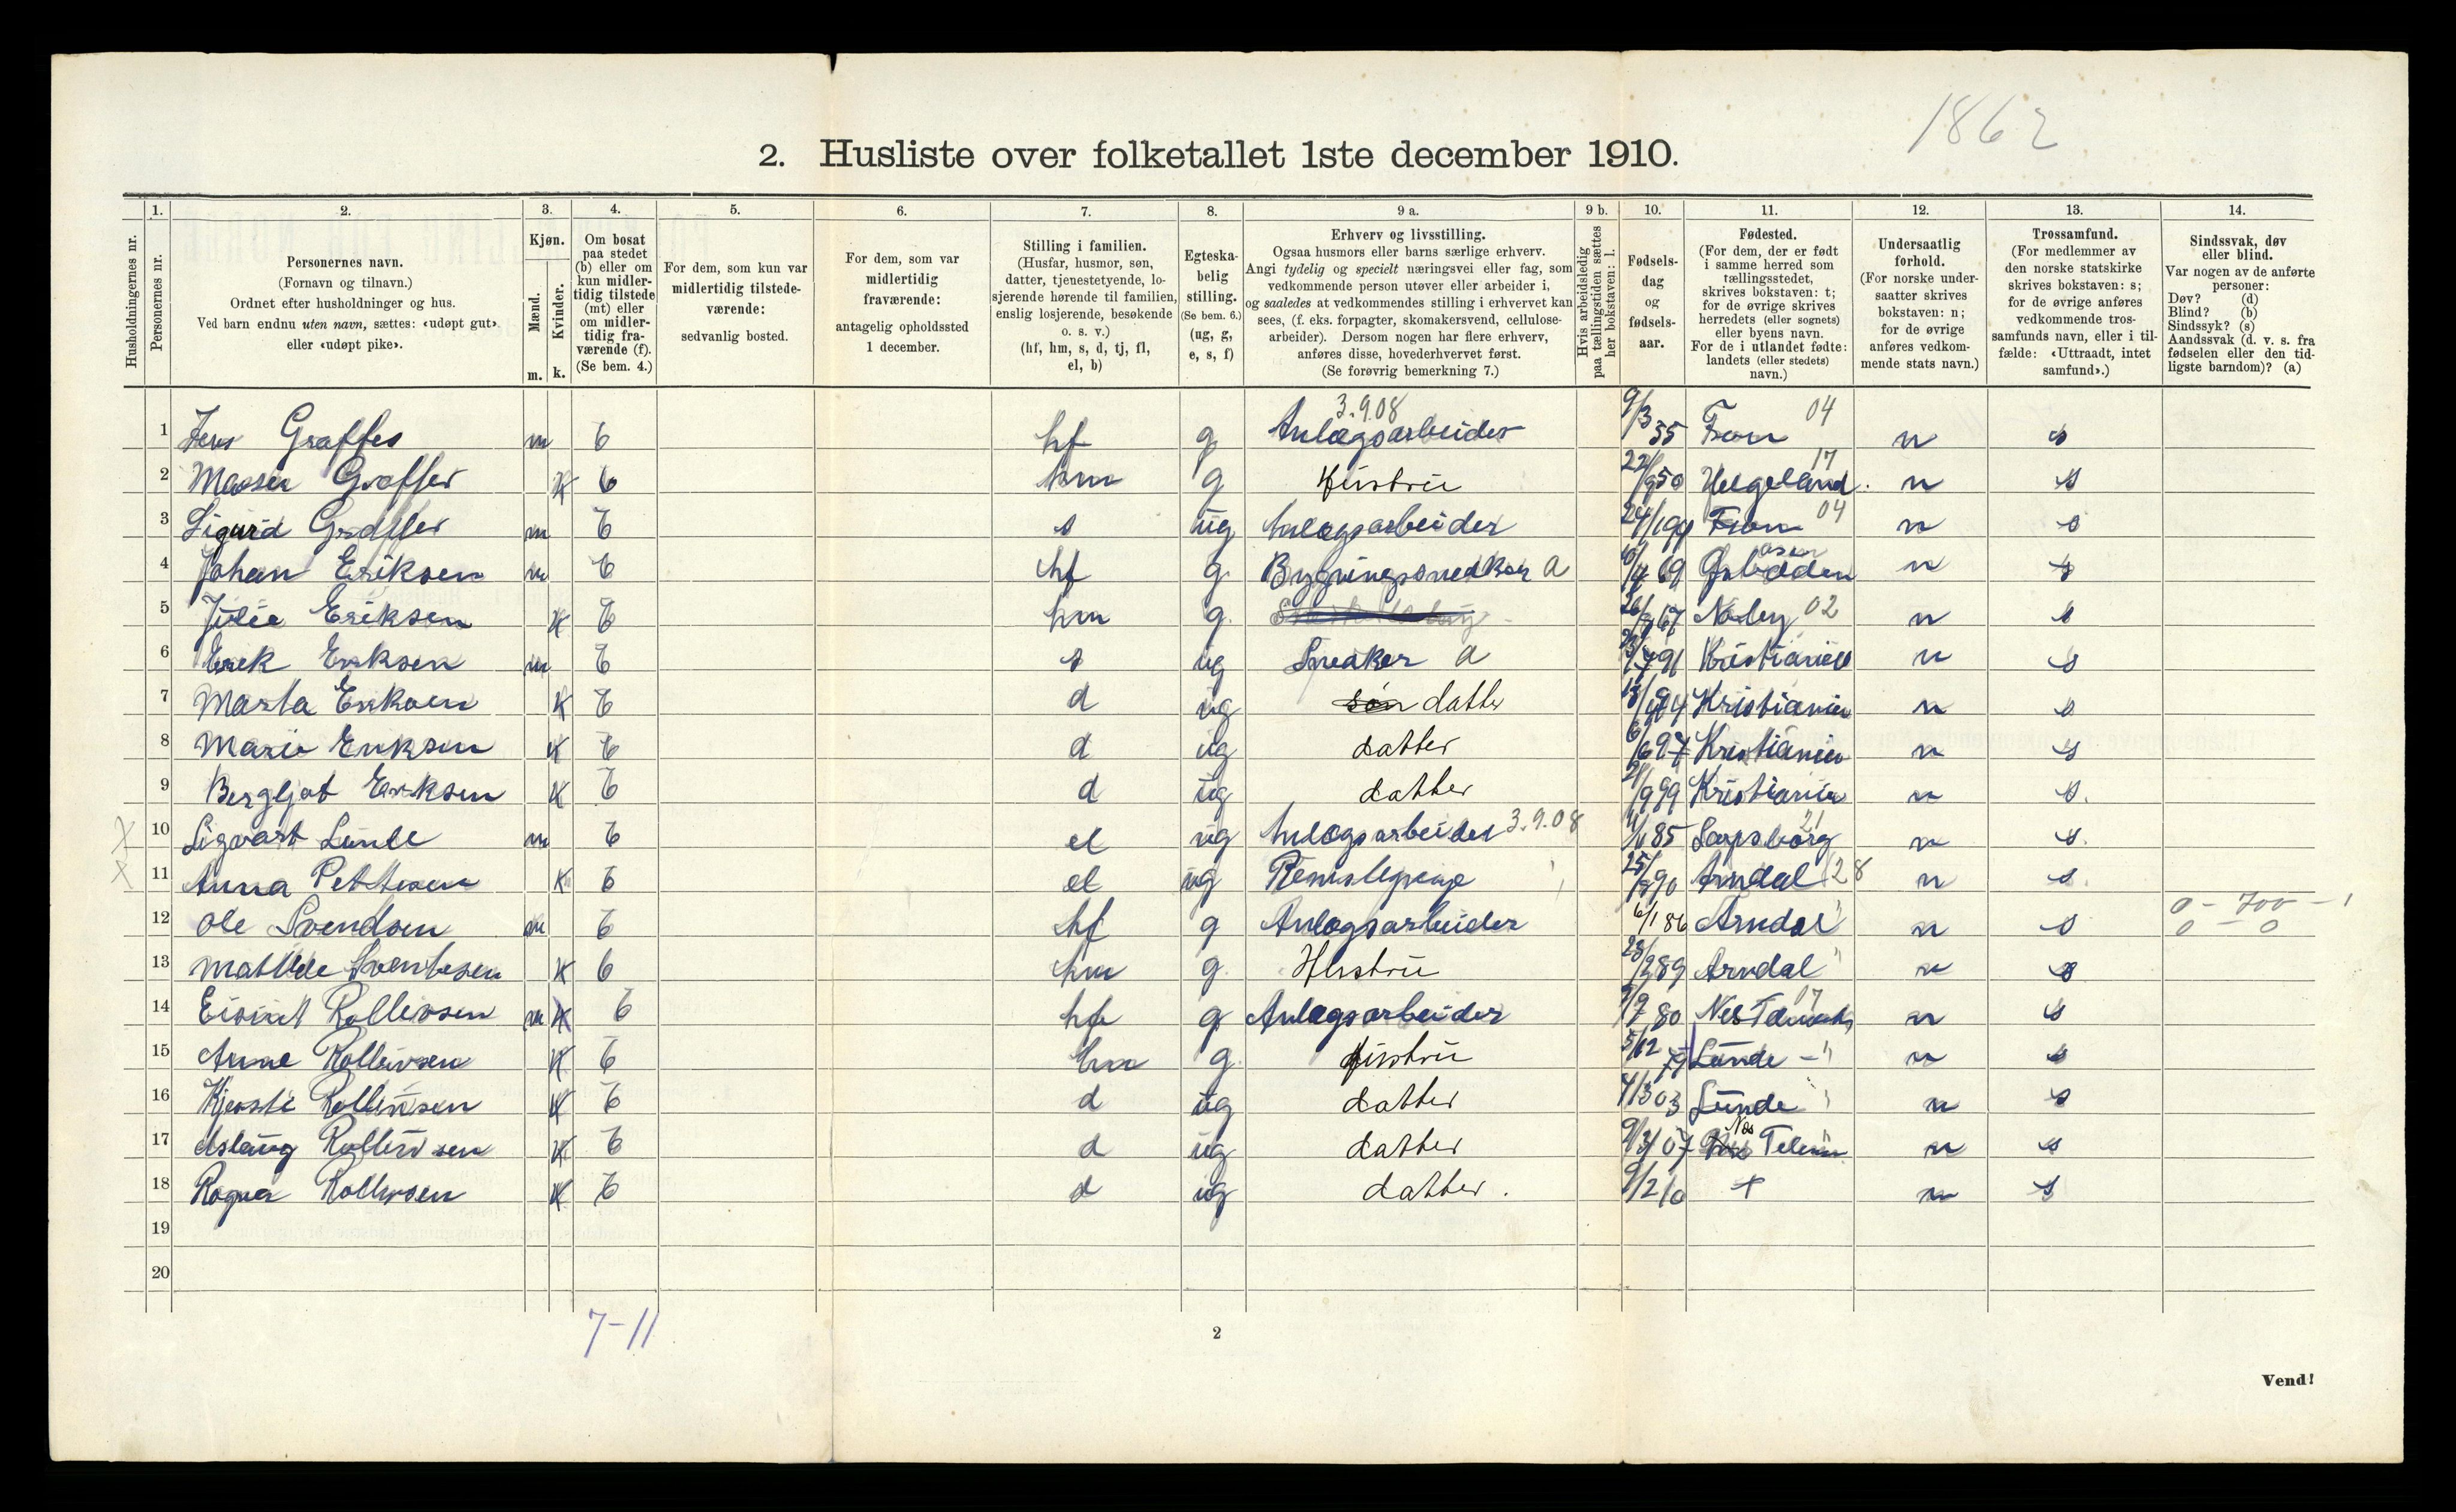 1862
2. Husliste over folketallet 1ste december 1910.
Husholdningernes nr.
1. Personernes nr.
2. Personernes navn.
(Fornavn og tilnavn.)
Ordnet efter husholdninger og hus.
Ved barn endnu uten navn, sættes: «udøpt gut»
eller «udøpt pike».
3. Kjøn.
Mænd. m.
Kvinder. k.
4. Om bosat
paa stedet
(b) eller om
kun midler-
tidig tilstede
(mt) eller
om midler-
tidig fra-
værende (f).
(Se bem. 4.)
5. For dem, som kun var
midlertidig tilstede-
værende:
sedvanlig bosted.
6. For dem, som var
midlertidig
fraværende:
antagelig opholdssted
1 december.
7. Stilling i familien.
(Husfar, husmor, søn,
datter, tjenestetyende, lo-
sjerende hørende til familien,
enslig losjerende, besøkende
o. s. v.)
(hf, hm, s, d, tj, fl,
el, b)
8. Egteska-
belig
stilling.
(Se bem. 6.)
(ug, g,
e, s, f)
9 a. Erhverv og livsstilling.
Ogsaa husmors eller barns særlige erhverv.
Angi tydelig og specielt næringsvei eller fag, som
vedkommende person utøver eller arbeider i,
og saaledes at vedkommendes stilling i erhvervet kan
sees, (f. eks. forpagter, skomakersvend, cellulose-
arbeider). Dersom nogen har flere erhverv,
anføres disse, hovederhvervet først.
(Se forøvrig bemerkning 7.)
9 b. Hvis arbeidsledig
paa tællingstiden sættes
her bokstaven: l.
10. Fødsels-
dag
og
fødsels-
aar.
11. Fødested.
(For dem, der er født
i samme herred som
tællingsstedet,
skrives bokstaven: t;
for de øvrige skrives
herredets (eller sognets)
eller byens navn.
For de i utlandet fødte:
landets (eller stedets)
navn.)
12. Undersaatlig
forhold.
(For norske under-
saatter skrives
bokstaven: n;
for de øvrige
anføres vedkom-
mende stats navn.)
13. Trossamfund.
(For medlemmer av
den norske statskirke
skrives bokstaven: s;
for de øvrige anføres
vedkommende tros-
samfunds navn, eller i til-
fælde: «Uttraadt, intet
samfund».)
14. Sindssvak, døv
eller blind.
Var nogen av de anførte
personer:
Døv? (d)
Blind? (b)
Sindssyk? (s)
Aandssvak (d. v. s. fra
fødselen eller den tid-
ligste barndom)? (a)
3.9.08
1 Jens Graffer m b hf g Anlægsarbeider 9/3 55 Fron 04 n s
2 Graffer k b hm g Hustru 50 Helgeland 17 n s
3 Sigurd Graffer m b s ug Anlægsarbeider Fron 04 n s
4 Johan Eriksen m b hf g Bygningssnedker a 69 n s
5 Julie Eriksen k b hm g 67 Næby 02 n s
6 Erik Eriksen m b s ug Sneaker a 91 Kristiania n s
7 Marta Eriksen k b d ug søn datter 94 Kristiania n s
8 Marie Eriksen k b d ug datter 6/6 97 Kristiania n s
9 Bergljot Eriksen k b d ug datter 99 Kristiania n s.
10 Sigvart Lunde m b el ug Anlægsarbeider 3.9.08 85 Sarpsborg n s.
11 Anna Pettersen k b el ug 90 Arndal 28 n s.
12 Ole Svendsen m b hf g Anlægsarbeider 6/1 86 Arndal " n s 0 - 700 - 1
0 - 0
13 Matilde Svendsen k b hm g. Hustru 28/2 89 Arndal " n s
14 Rollevsen m k b hf g Anlægsarbeider 80 Nes Telemark 17 n s
15 Anne Rollevsen k b hm g. Hustru 5/12 79 Lunde - " n s
16 Kjersti Rollevsen k b d ug datter 4/3 03 Lunde " n s
17 Aslaug Rollevsen k b d ug datter 9/3 07 Nes Telem n s
18 Ragna Rollevsen k b d ug datter. 9/2 10 t n s
19
20
7-11
2
Vend!